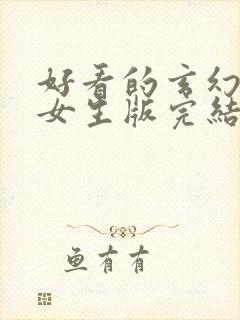 好看的玄幻
女生版完結
鱼有有